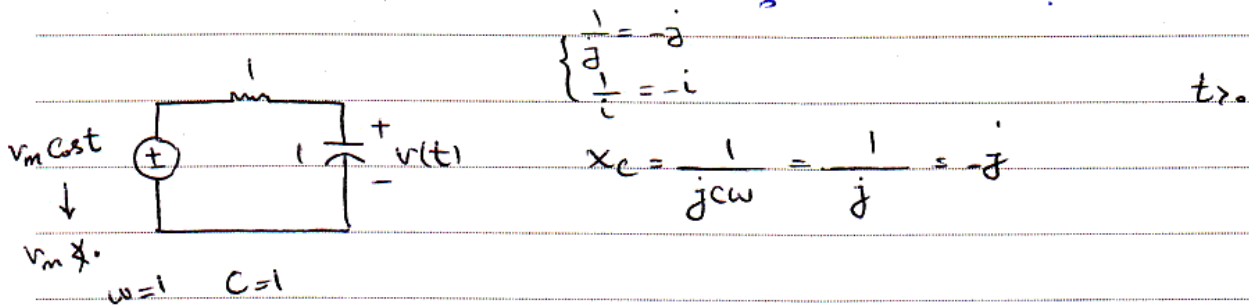 1/j = -j
1/i = -i
t>0
1
v_m Cos t
1
+
v(t)
-
x_C = 1/(jCω) = 1/j = -j
↓
v_m ∡0
ω=1 C=1